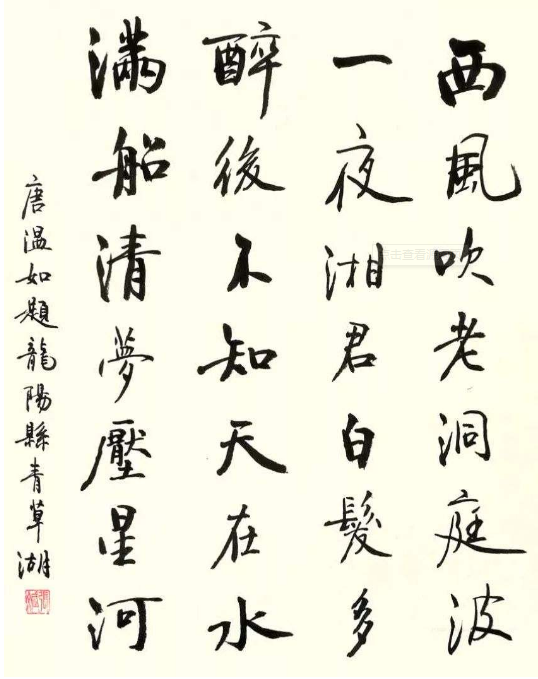 西風吹老洞庭波
一夜湘君白髮多
醉後不知天在水
滿船清夢壓星河
唐温如題龍陽縣青草湖